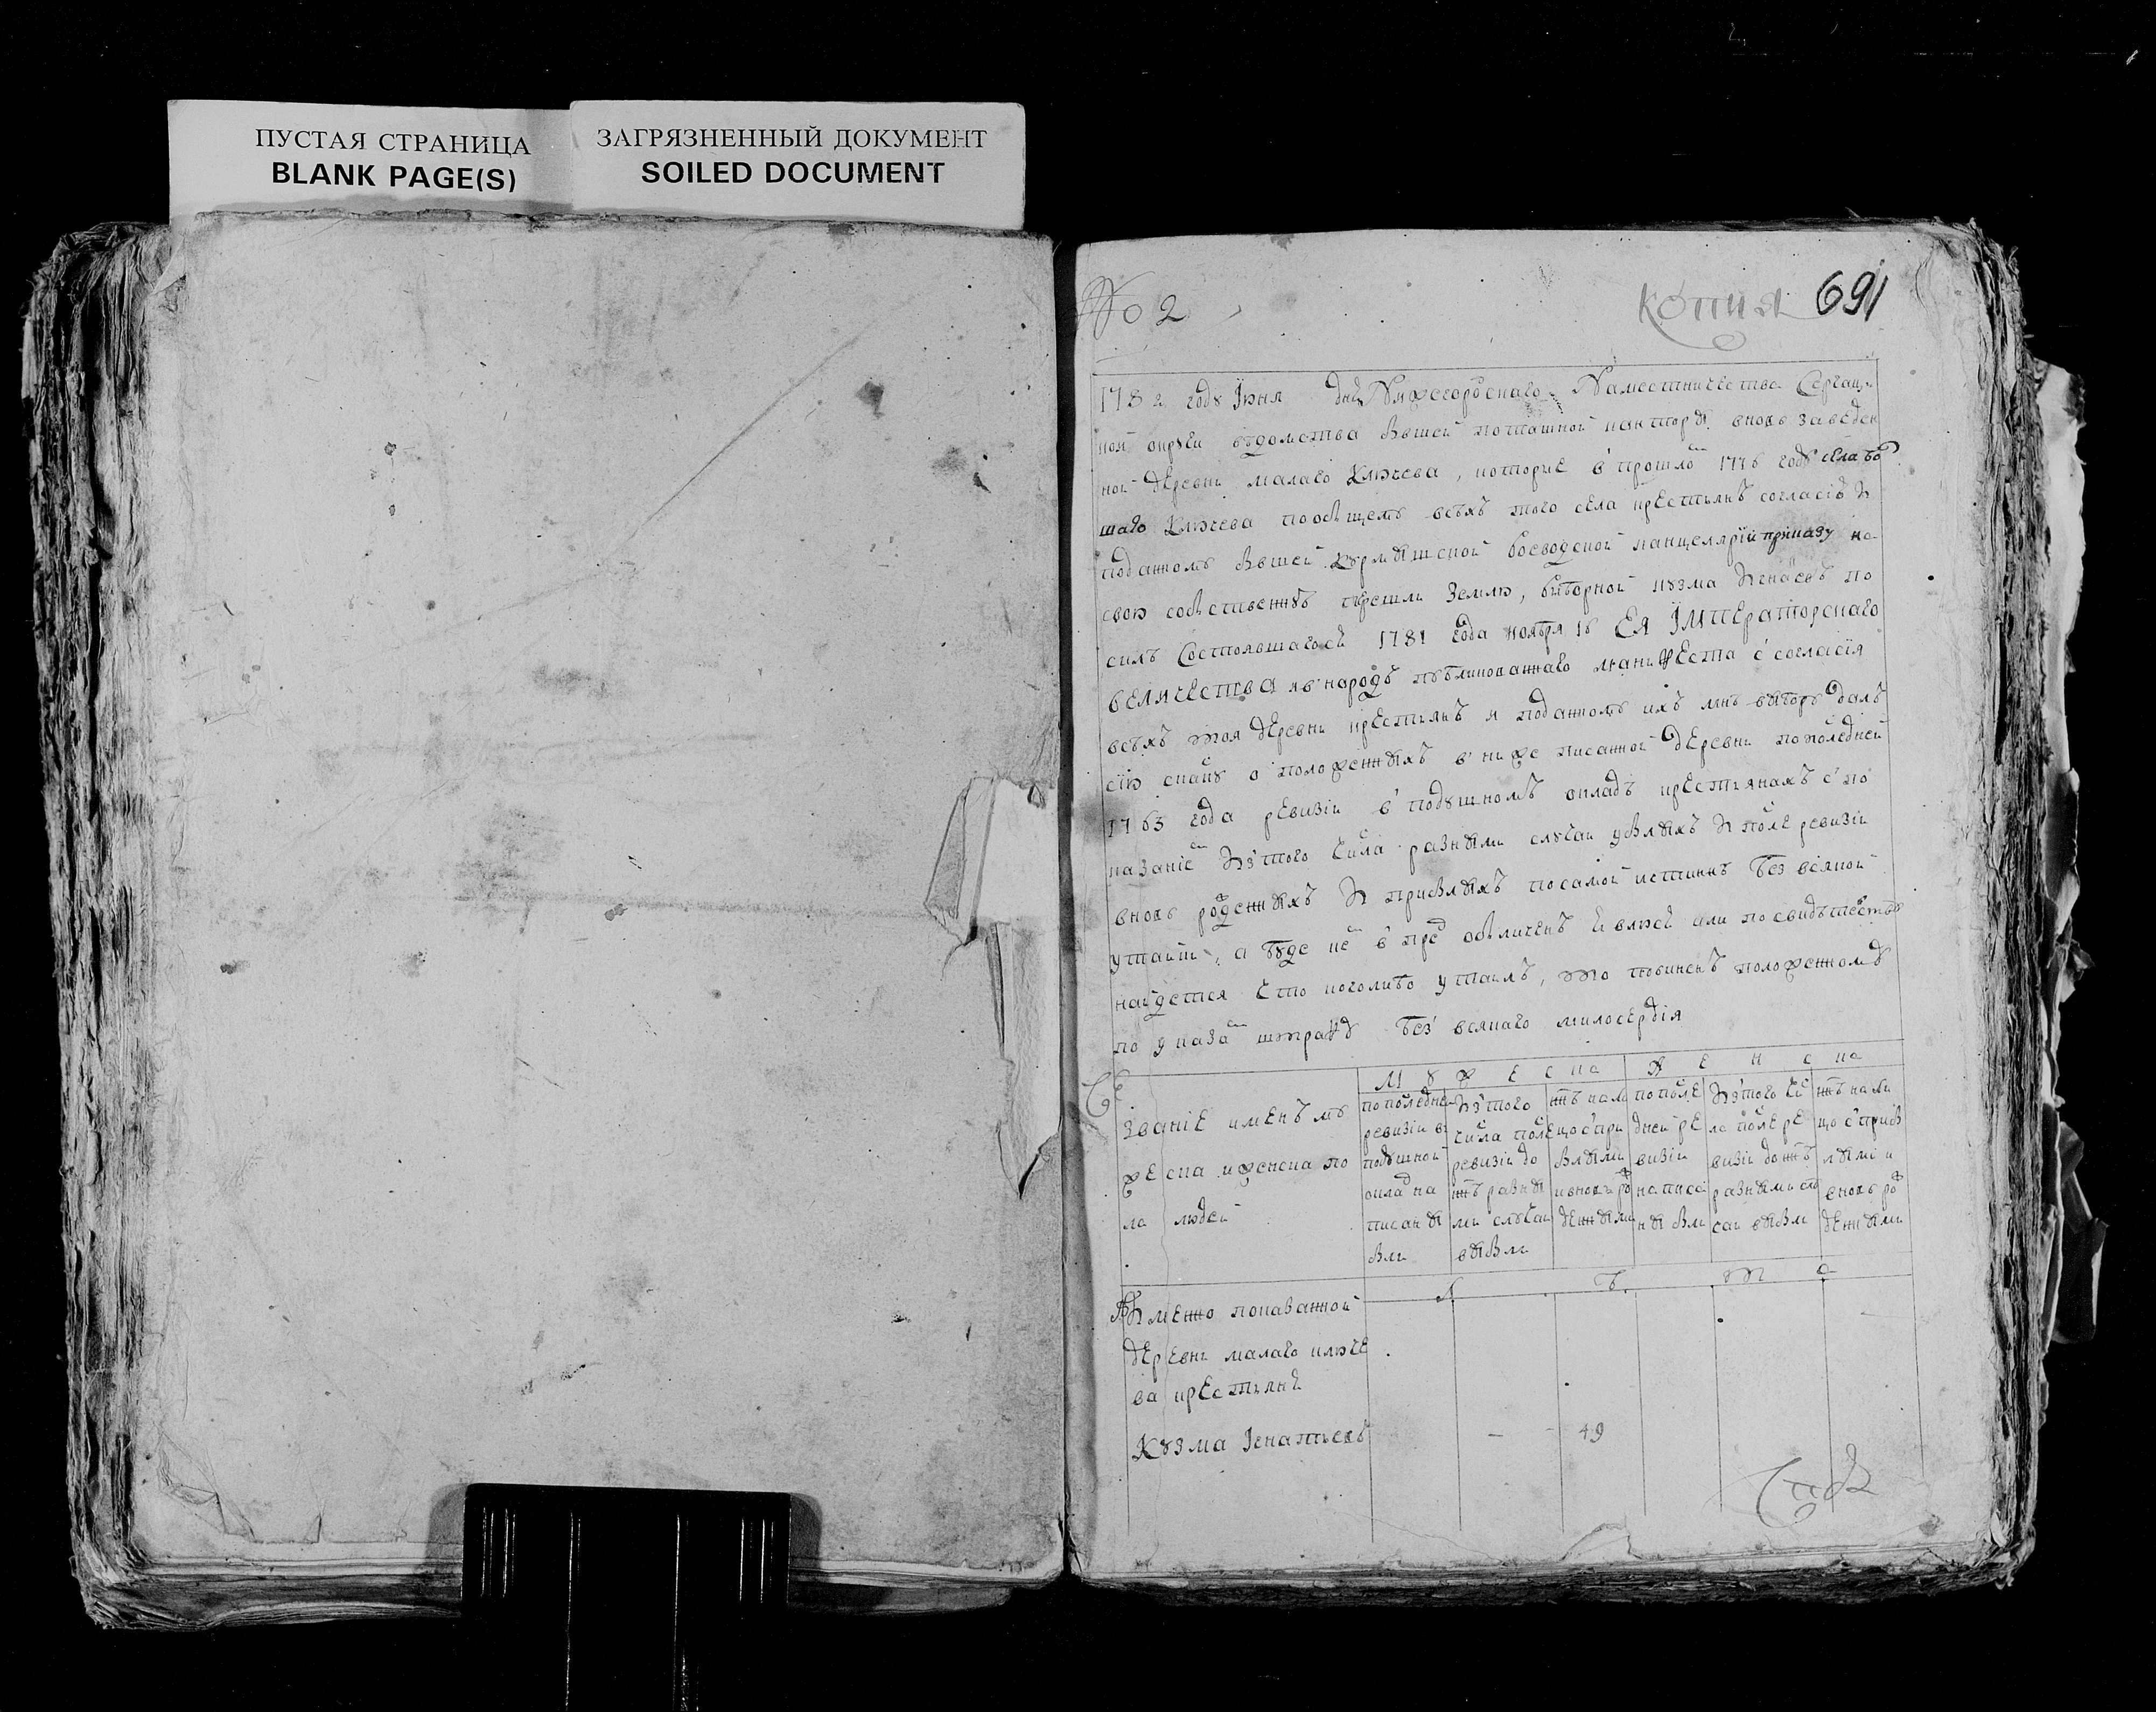 ПУСТАЯ СТРАНИЦА
BLANK PAGE(S)
ЗАГРЯЗНЕННЫЙ ДОКУМЕНТ
SOILED DOCUMENT
No 2
копия 691
1782 году Iюня дня Нижегородскаго Наместничества Сергац
кой округи ведомства бывшей поташной канторы вновь заведен
ной деревни малаго Ключева, которые в прошлом 1776 году села бо
шаго Ключева пообщему всехъ того села крестьянъ согласию и
поданному бывшей курмышской воеводской канцелярiи приказу на
свою собственную землю, выборной кузма по
силе состоявшагося 1781 года ноября 16 ЕЯ IМПЕРАТОРСКАГО
ВЕЛИЧЕСТВА и в народъ публикованнаго манифеста с согласiя
всехъ тоя деревни крестьянъ и поданному ихъ мне выбору далъ
сiю скаску о положенныхъ в ниже писанной деревни попоследней
1763 года ревизiи в подушномъ окладе крестьянахъ с по
казанiемъ изъ того числа разными случаи убылыхъ и после ревизiи
вновь рожденныхъ и прибылыхъ по самой истинне без всякой
утайки, а буде кемъ в пред обличенъ явлюсь или по свидетельству
найдется что коголибо утаилъ, то повиненъ положенному
по указамъ штрафу без всякаго милосердiя
званiе именъ му
жеска и женска по
ла людей
МУЖЕСКА
ЖЕНСКА
попоследней
ревизiи в
подушной
оклад на
писаны
были
изъ того
числа после
ревизiи до
ныне разны
ми случаи
выбыли
ныне на ли
цо с при
былыми
и вновь рож
денными
по после
дней ре
визiи
написа
ны были
изъ того чис
ла после ре
визiи до ныне
разными слу
чаи выбыли
ныне на ли
цо с прибы
лыми и
вновь рож
денными
Лета
А именно показанной
деревни малаго ключе
ва крестьяне
Кузма Iгнатьевъ
49